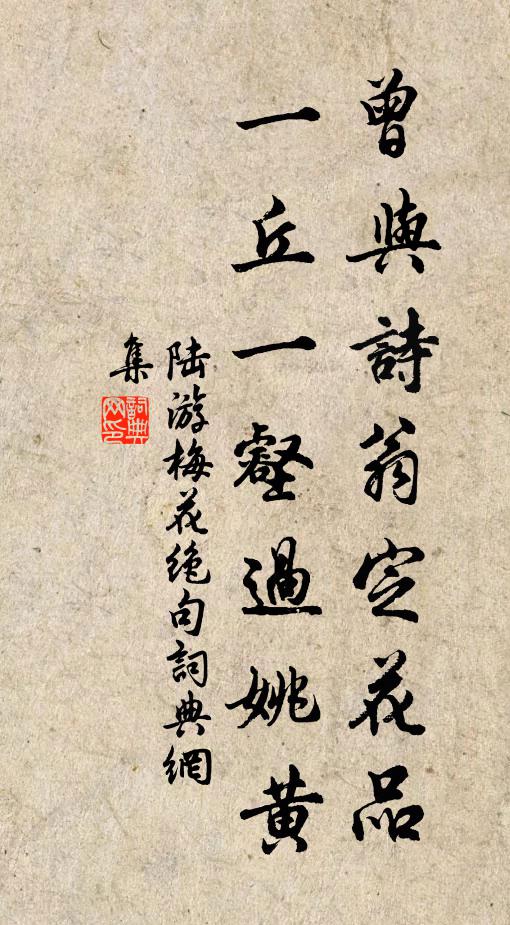 曾與詩翁定花品
一丘一壑過姚黃
陸游梅花絶句詞典網
集
詞典
网印